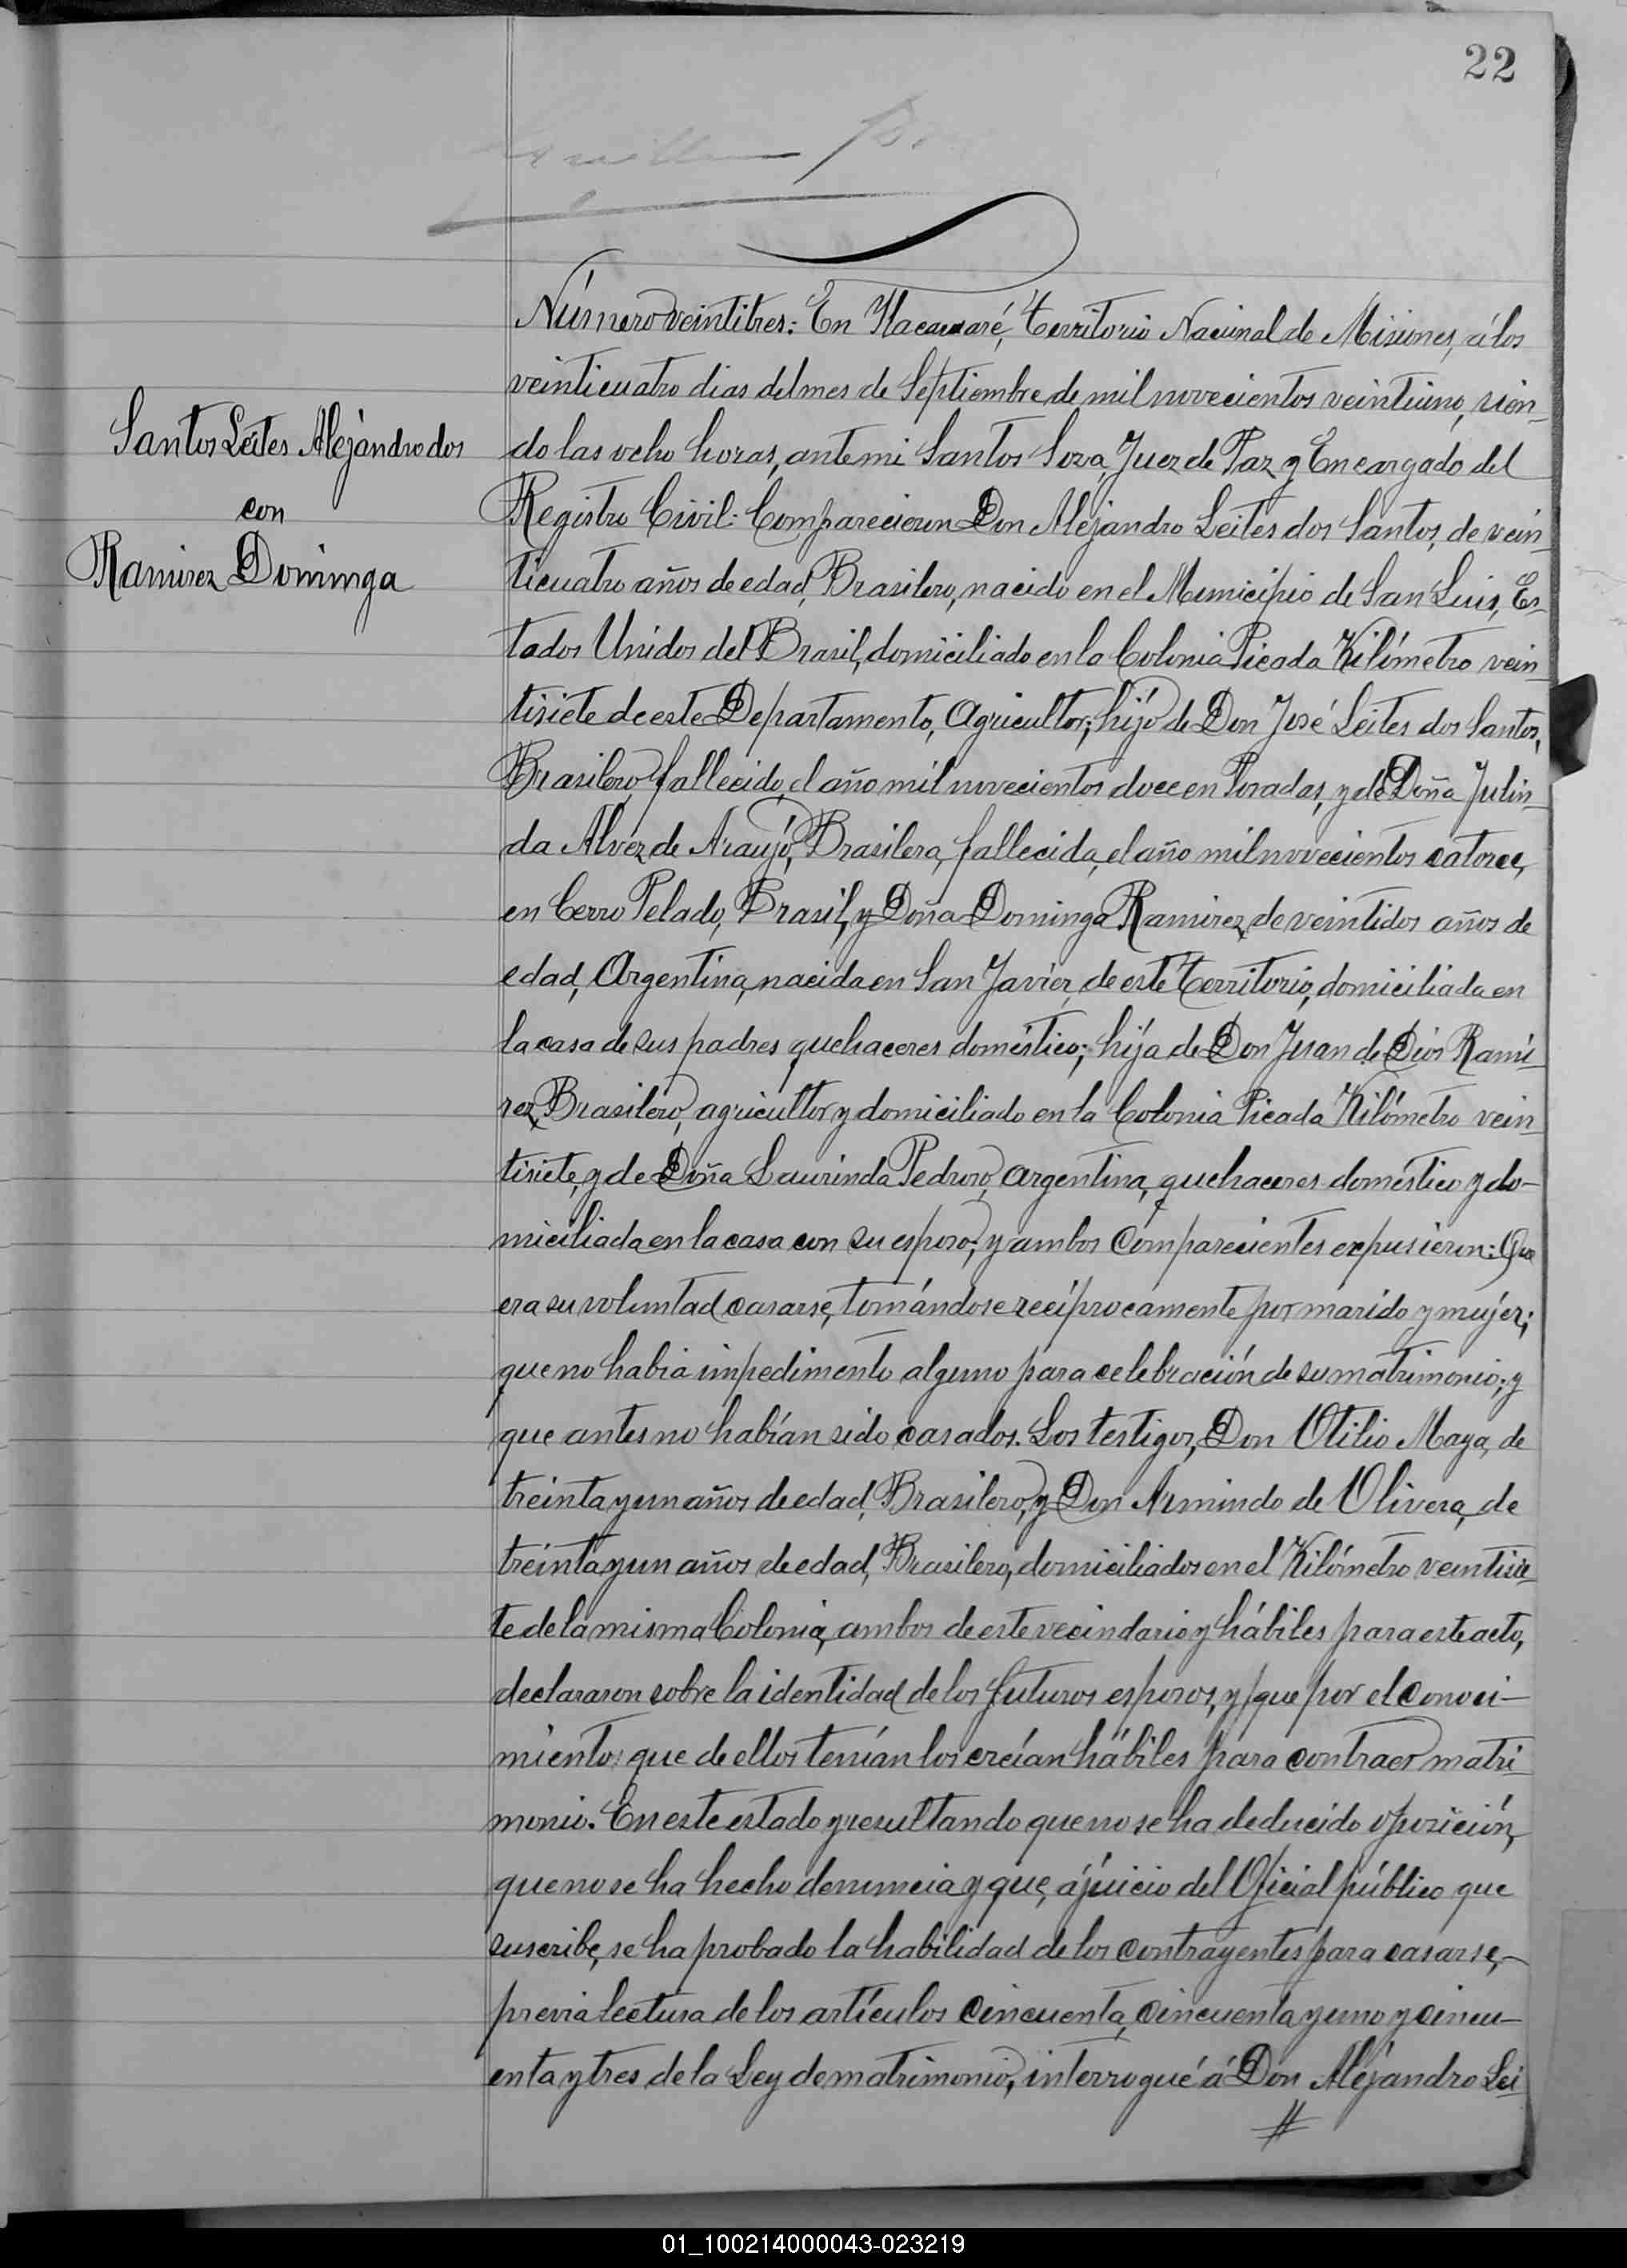 22
Número veintitres: En Itacaruaré, Territorio Nacional de Misiones, á los
veinticuatro dias del mes de Septiembre de mil novecientos veintiuno, sien-
Santos Leites Alejandro dos
do las ocho horas, ante mi Santos Sosa, Juez de Paz y Encargado del
con
Registro Civil: Comparecieron Don Alejandro Leites dos Santos, de vein-
Ramirez Dominga
ticuatro años de edad, Brasilero, nacido en el Municipio de San Luis, Es-
tados Unidos del Brasil, domiciliado en la Colonia Picada Kilómetro vein-
tisiete de este Departamento, Agricultor; hijo de Don José Leites dos Santos,
Brasilero, fallecido, el año mil novecientos doce en Posadas, y de Doña Julin-
da Alvez de Araujó, Brasilera, fallecida, el año mil novecientos catorce,
en Cerro Pelado, Brasil, y Doña Dominga Ramirez, de veintidos años de
edad, Argentina, nacida en San Javier, de este Territorio, domiciliada en
la casa de sus padres quehaceres doméstico; hija de Don Juan de Dios Rami-
rez, Brasilero, agricultor y domiciliado en la Colonia Picada Kilómetro vein-
tisiete, y de Doña Laurinda Pedroso, argentina, quehaceres doméstico y do-
miciliada en la casa con su esposo; y ambos comparecientes expusieron: Que
era su voluntad casarse, tomándose recíprocamente por marido y mujer;
que no habia impedimento alguno para celebración de su matrimonio; y
que antes no habían sido casados. Los testigos, Don Otilio Maya, de
treinta y un años de edad, Brasilero, y Don Armindo de Olivera, de
treinta y un años de edad, Brasilero, domiciliados en el Kilómetro veintisie-
te de la misma Colonia, ambos de este vecindario y hábiles para este acto,
declararon sobre la identidad de los futuros esposos, y que por el conoci-
miento que de ellos tenían los creían hábiles para contraer matri-
monio. En este estado y resultando que no se ha deducido oposición,
que no se ha hecho denuncia y que, á juicio del Oficial público que
suscribe, se ha probado la habilidad de los contrayentes para casarse,
previa lectura de los artículos cincuenta, cincuenta y uno y cincu-
enta y tres de la Ley de matrimonio, interrogué á Don Alejandro Lei-
#
01_100214000043-023219